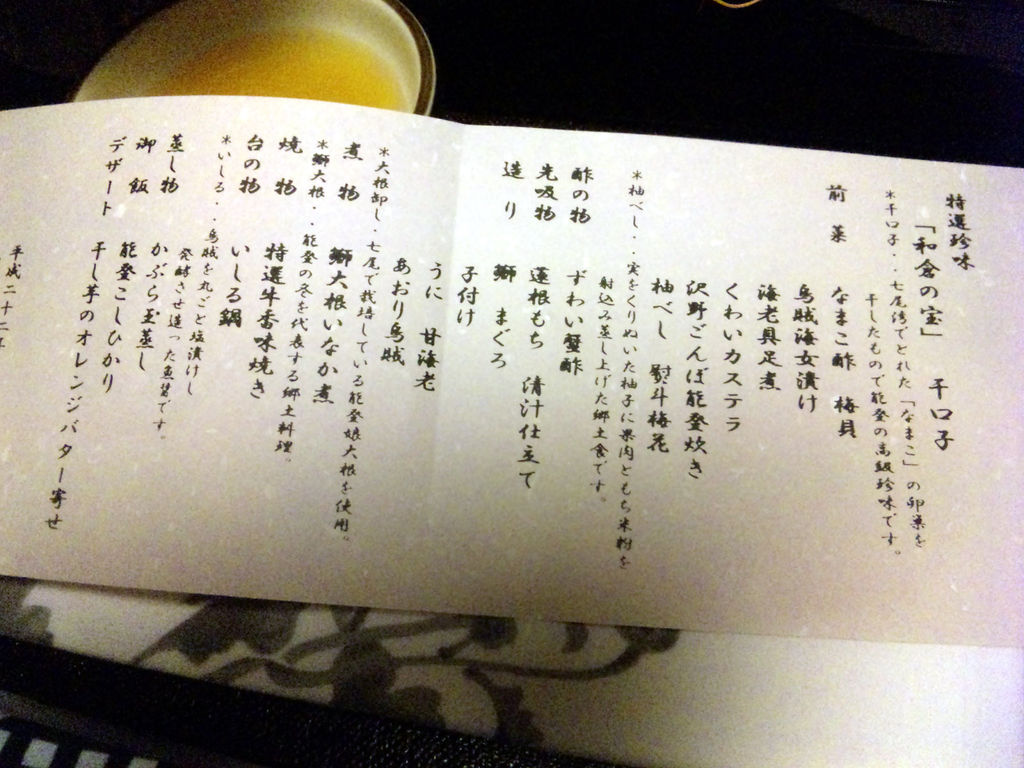 特選珍味
「和倉の宝」 干口子
*干口子・・七尾湾でとれた「なまこ」の卵巣を
干したもので能登の高級珍味です。
前菜 なまこ酢 梅貝
烏賊海女漬け
海老具足煮
くわいカステラ
沢野ごんぼ能登炊き
柚べし 熨斗梅花
*柚べし・・実をくりぬいた柚子に果肉ともち米粉を
射込み蒸し上げた郷土食です。
酢の物 ずわい蟹酢
先吸物 蓮根もち 清汁仕立て
造り 鰤 まぐろ
子付け
うに 甘海老
あおり烏賊
*大根卸し・・七尾で栽培している能登娘大根を使用。
煮物 鰤大根いなか煮
*鰤大根・・能登の冬を代表する郷土料理。
焼物 特選牛香味焼き
台の物 いしる鍋
*いしる・・烏賊を丸ごと塩漬けし
発酵させ造った魚醤です。
蒸し物 かぶら玉蒸し
御飯 能登こしひかり
デザート 干し芋のオレンジバター寄せ
平成二十二年